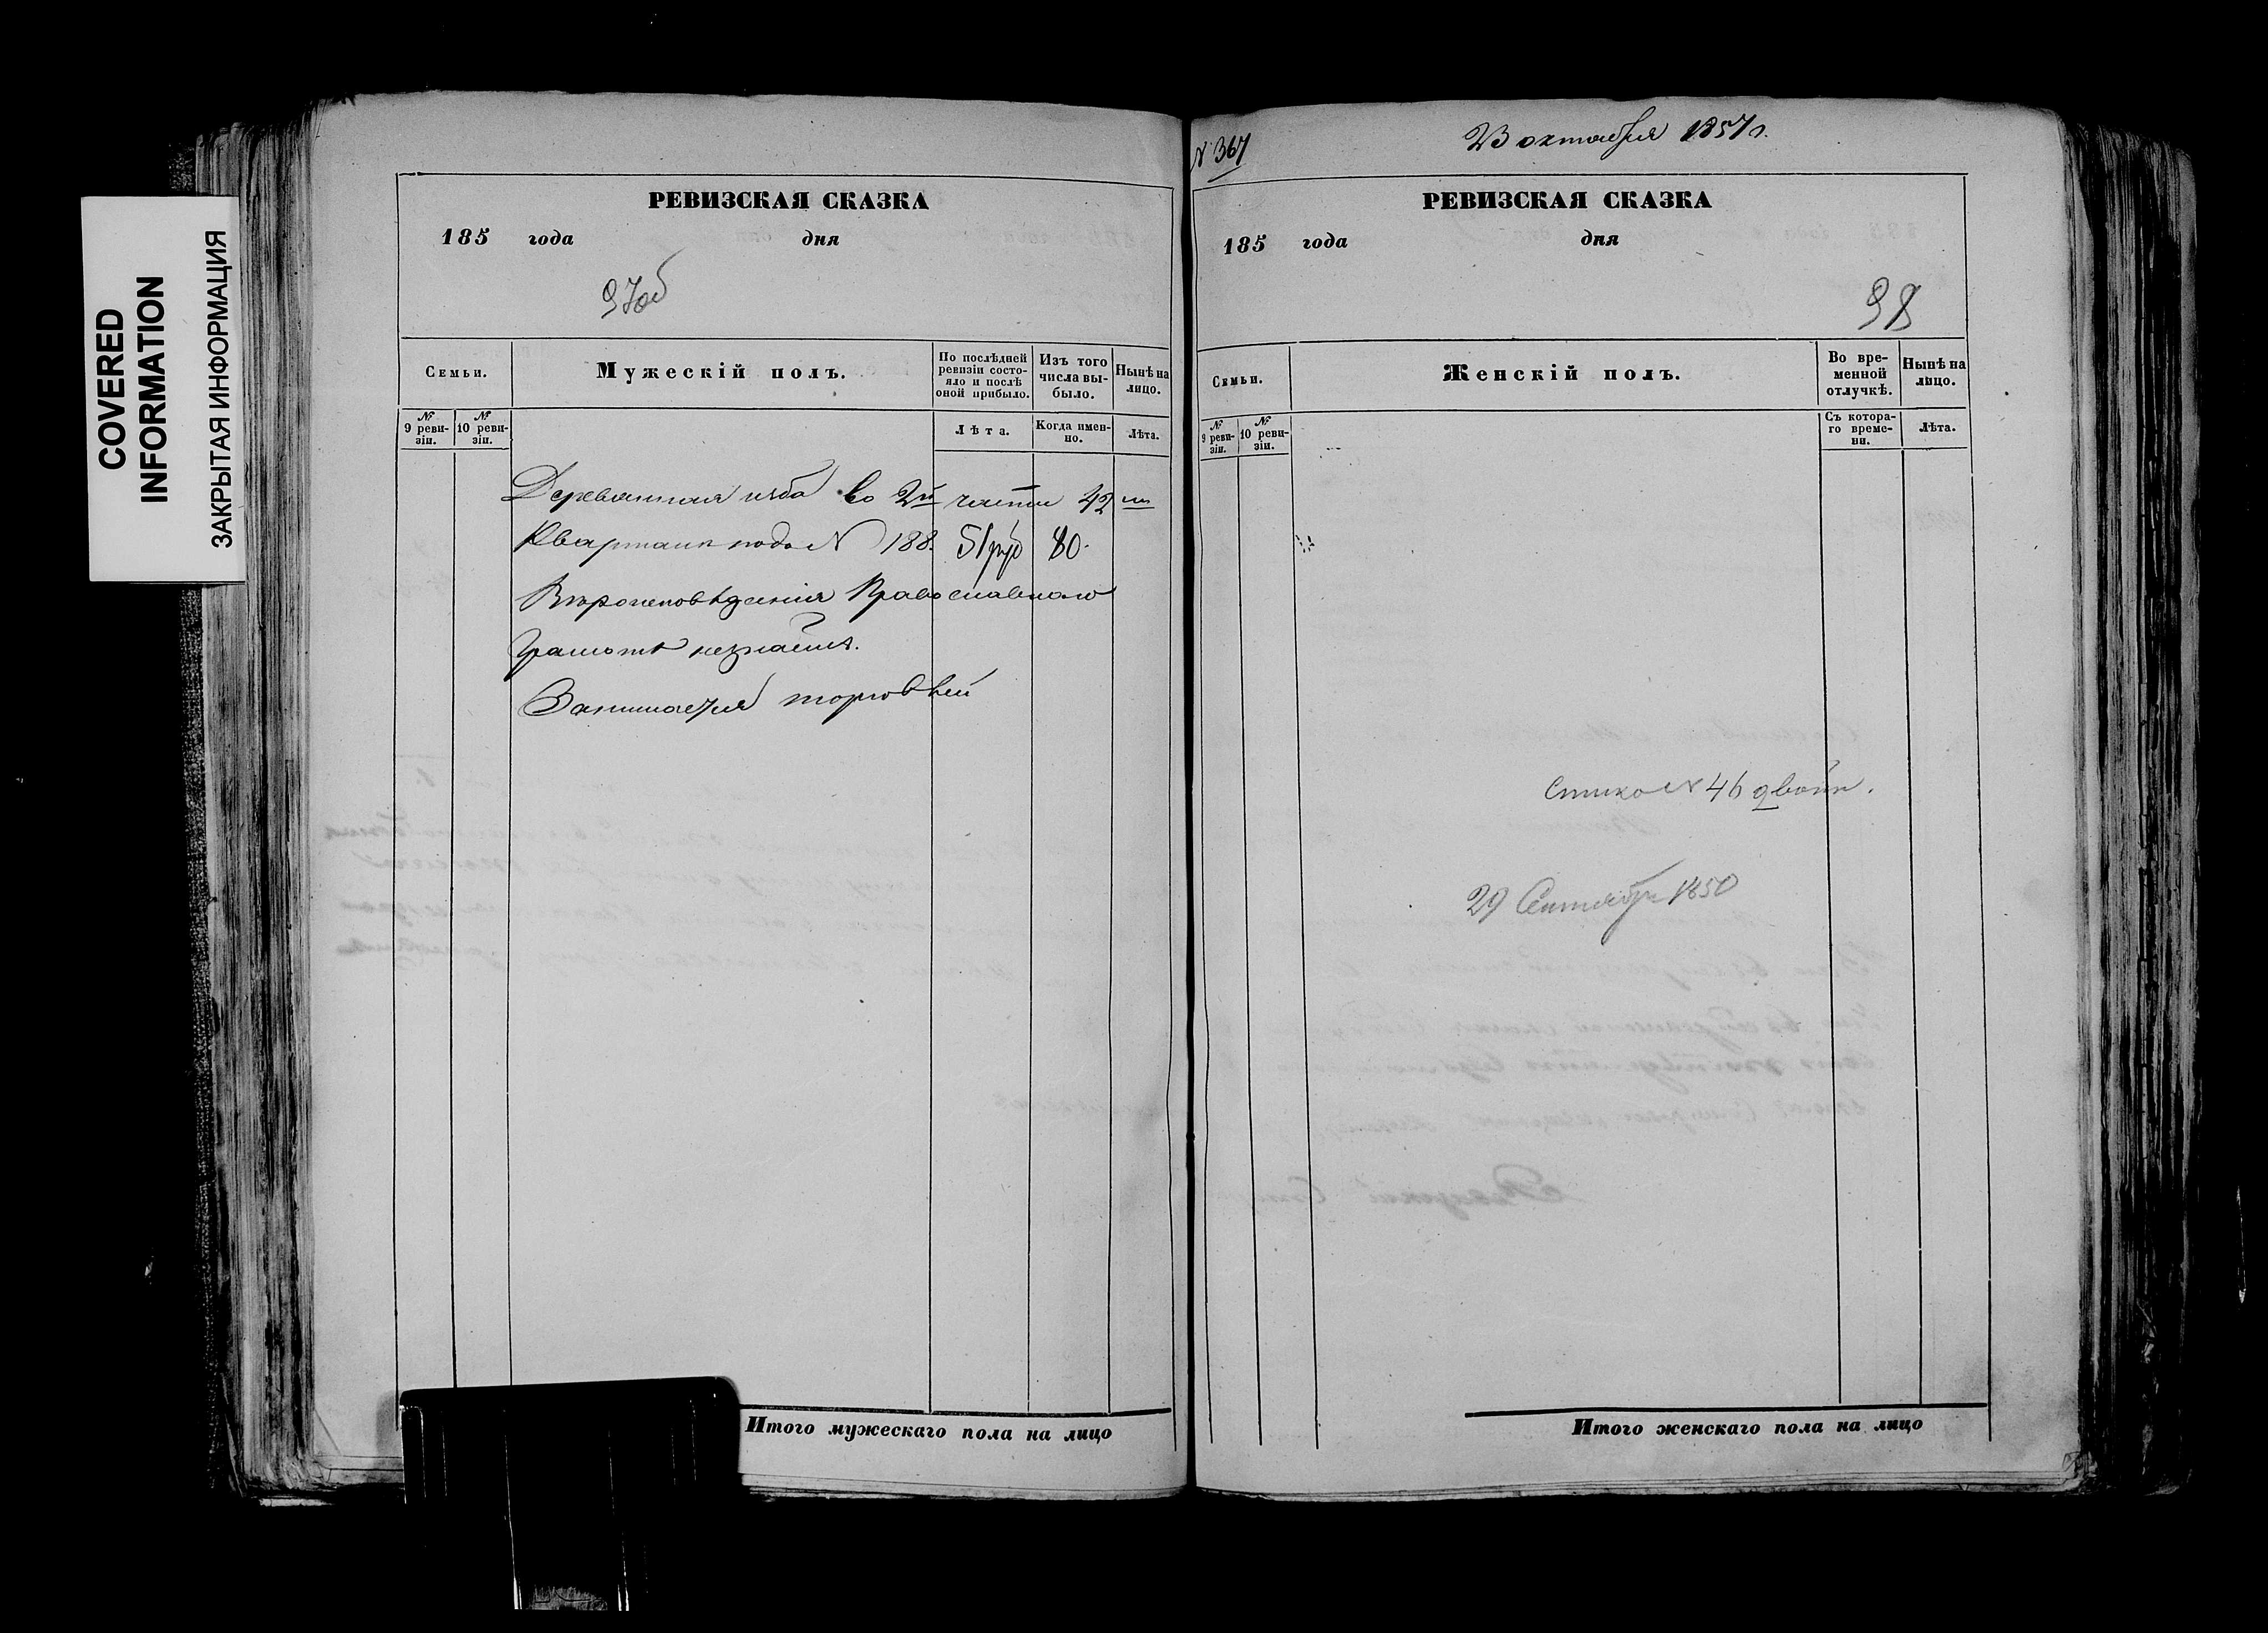 COVERED
INFORMATION
ЗАКРЫТАЯ ИНФОРМАЦИЯ
РЕВИЗСКАЯ СКАЗКА
185 года дня
97об
Семьи.
Мужескій полъ.
По послѣдней ревизіи состояло и послѣ оной прибыло.
Изъ того числа выбыло.
Нынѣ на лицо.
№ 9 ревизіи.
№ 10 ревизіи.
Лѣта.
Когда именно.
Лѣта.
Деревянная изба во 2й части 42м
Кварталѣ подъ N 188. 51 руб 80.
Вѣроисповѣданія Православнаго
Грамотѣ незнаетъ.
Занимается торговлей
N 367
23 октября 1857 г.
РЕВИЗСКАЯ СКАЗКА
185 года дня
98
Семьи.
Женскій полъ.
Во временной отлучкѣ.
Нынѣ на лицо.
№ 9 ревизіи.
№ 10 ревизіи.
Съ котораго времени.
Лѣта.
N 46
29 Сентября 1850
Итого мужескаго пола на лицо
Итого женскаго пола на лицо